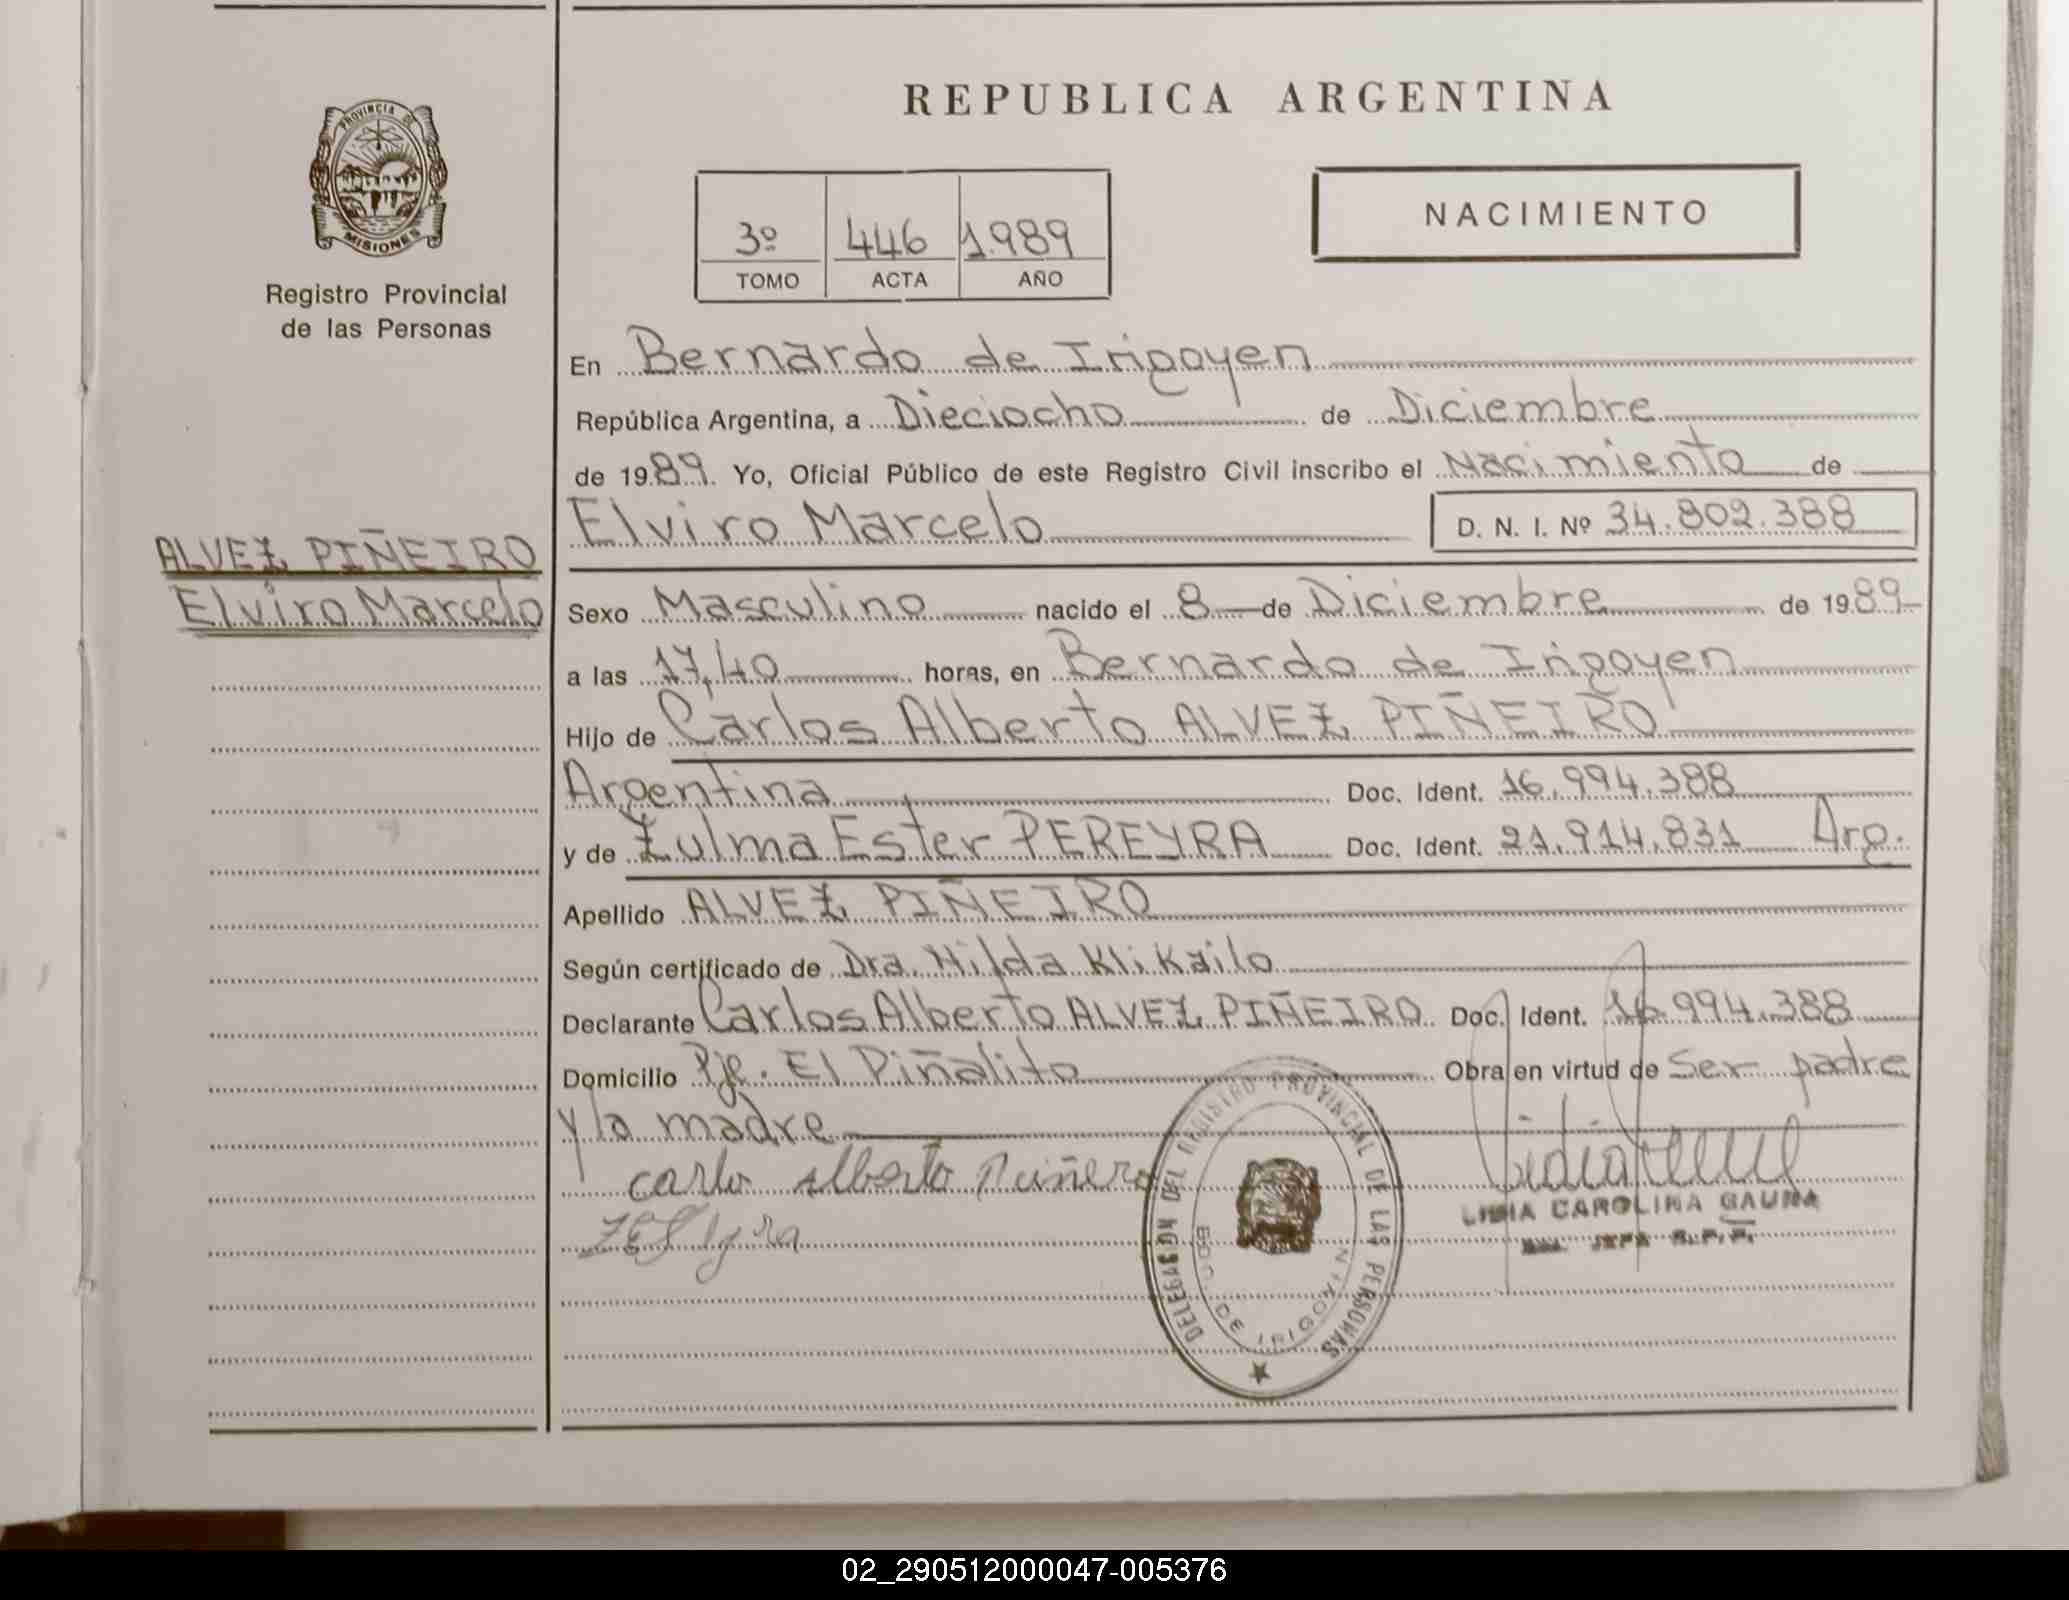 REPUBLICA ARGENTINA
PROVINCIA DE
MISIONES
Registro Provincial
de las Personas
3º 446 1989
TOMO ACTA AÑO
NACIMIENTO
En Bernardo de Irigoyen
República Argentina, a Dieciocho de Diciembre
de 1989. Yo, Oficial Público de este Registro Civil inscribo el Nacimiento de
Elviro Marcelo D. N. I. Nº 34.802.388
ALVEZ PIÑEIRO
Elviro Marcelo
Sexo Masculino nacido el 8 de Diciembre de 1989
a las 17,40 horas, en Bernardo de Irigoyen
Hijo de Carlos Alberto ALVEZ PIÑEIRO
Argentina Doc. Ident. 16.994.388
y de Zulma Ester PEREYRA Doc. Ident. 21.914.831 Arg.
Apellido ALVEZ PIÑEIRO
Según certificado de Dra. Hilda Klikailo
Declarante Carlos Alberto ALVEZ PIÑEIRO Doc. Ident. 16.994.388
Domicilio Pje. El Piñalito Obra en virtud de Ser padre
y la madre
Carlo Alberto
DELEGACION DEL REGISTRO PROVINCIAL DE LAS PERSONAS
DE IRIGOYEN
LIDIA CAROLINA GAUNA
JEFA R.P.P.
02_290512000047-005376